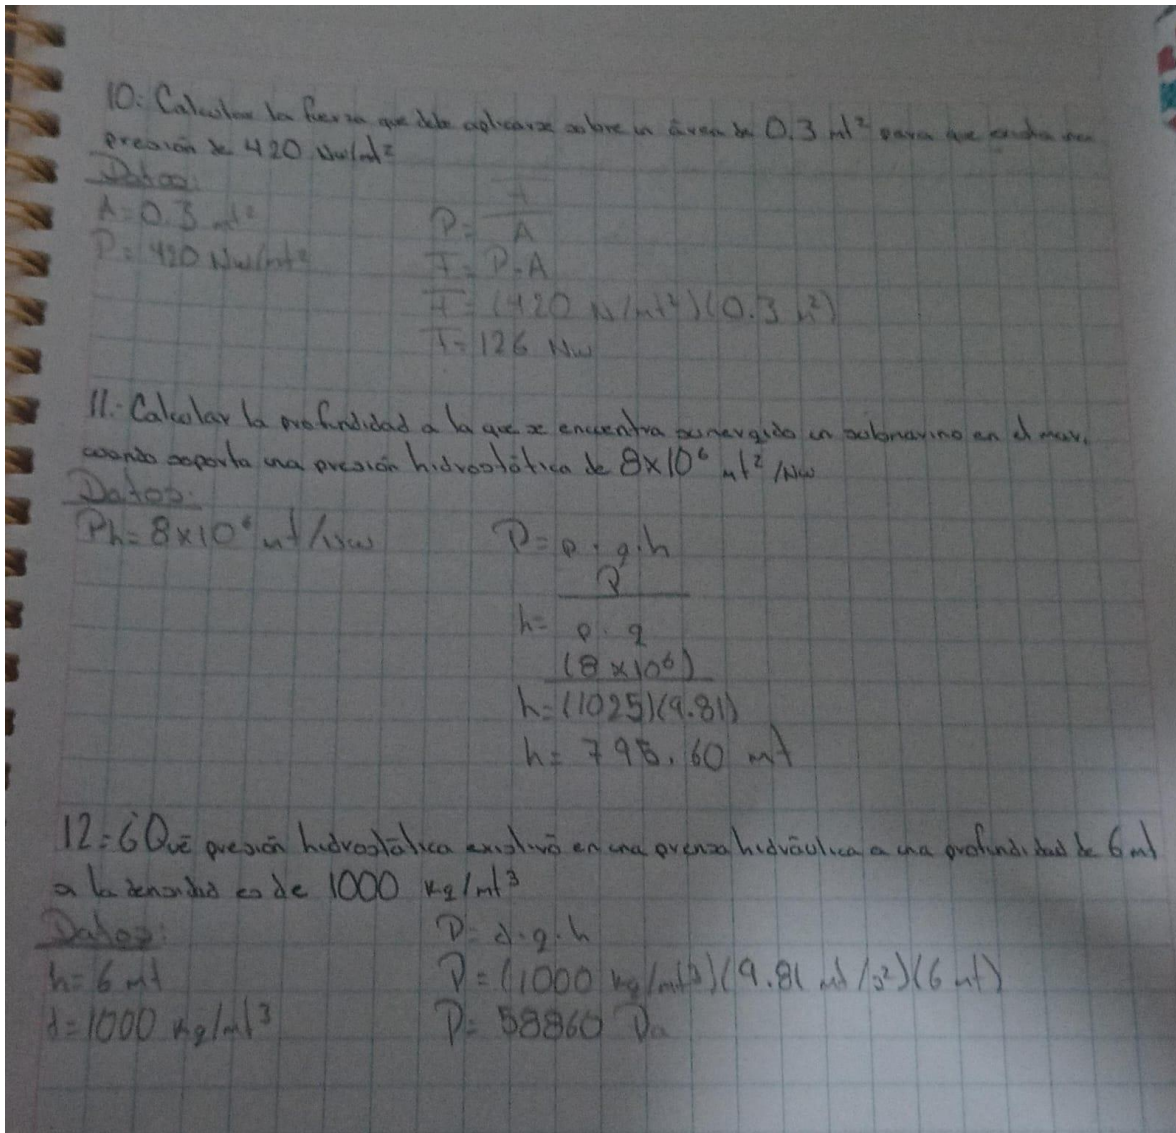 10: Calcular la fuerza que debe aplicarse sobre un área de 0.3 mt² para que exista una
presión de 420 Nw/mt²
Datos:
A=0.3 mt²
P=420 Nw/mt²
P= F
A
F= P.A
F= (420 N/mt²)(0.3 m²)
F=126 Nw
11.- Calcular la profundidad a la que se encuentra sumergido un submarino en el mar.
cuando soporta una presión hidrostática de 8x10⁶ mt²/Nw
Datos:
Ph=8x10⁶ mt/Nw
P=ρ.g.h
P
h= ρ.g
(8x10⁶)
h=(1025)(9.81)
h= 795.60 mt
12=¿Qué presión hidrostática existirá en una prensa hidráulica a una profundidad de 6 mt
a la densidad es de 1000 kg/mt³
Datos:
h=6 mt
d=1000 kg/mt³
P= d.g.h
P=(1000 kg/mt³)(9.81 mt/s²)(6 mt)
P= 58860 Pa